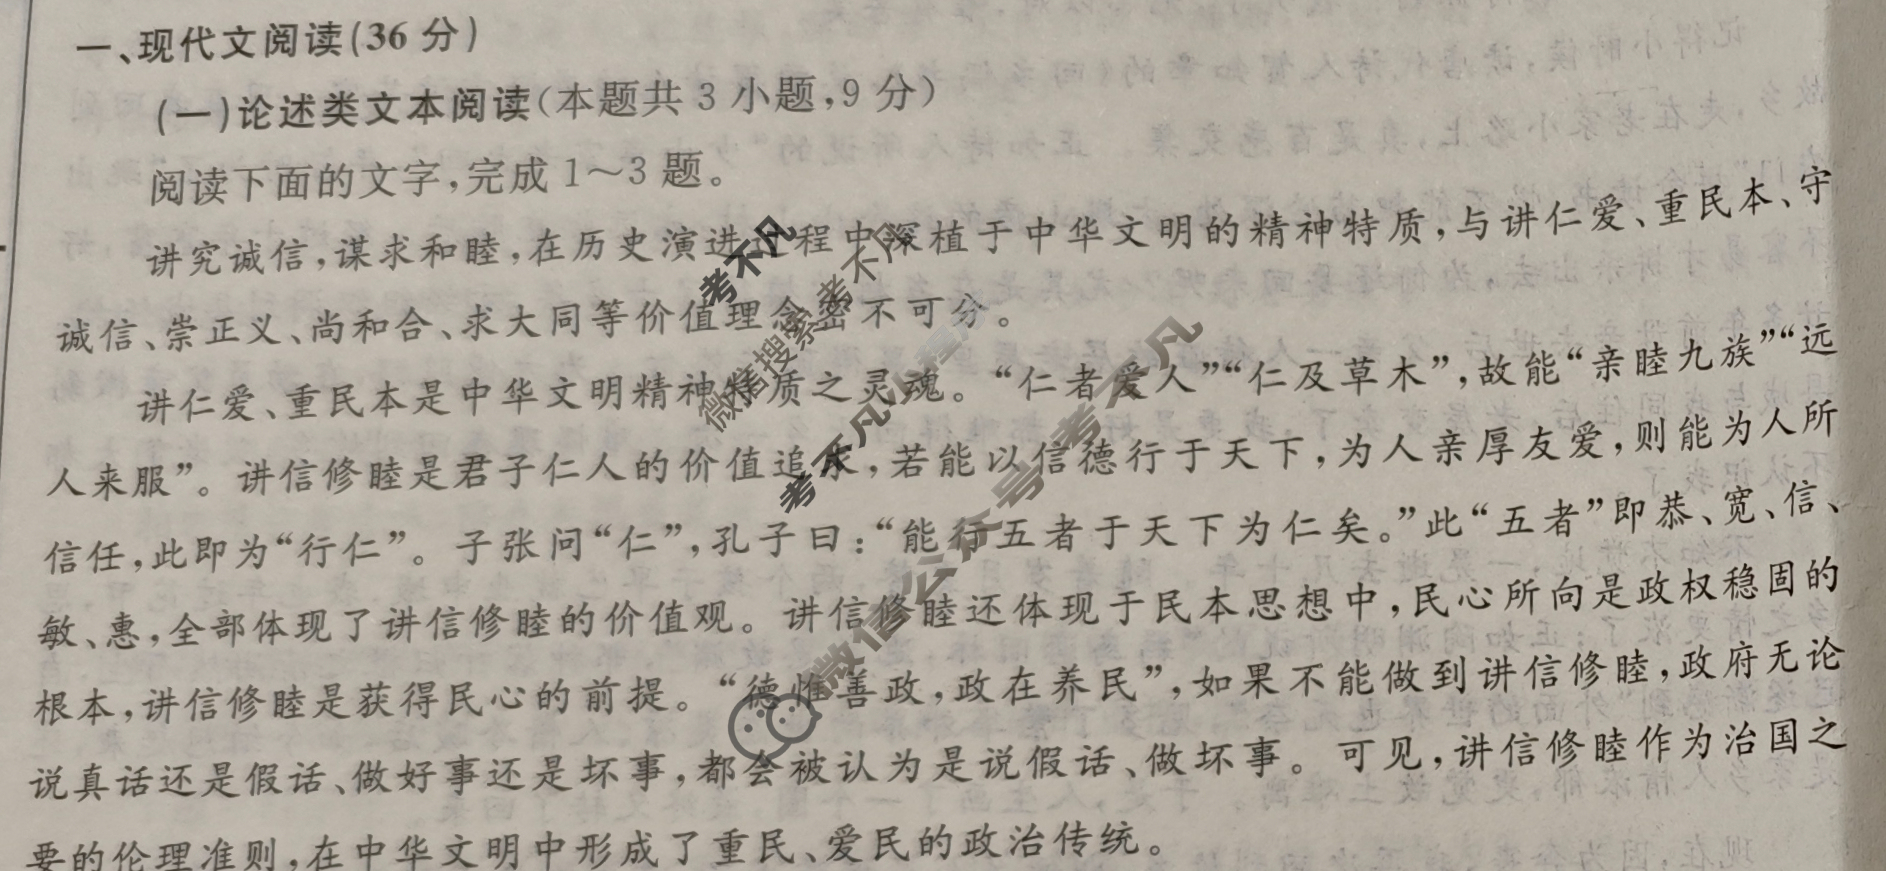 一、现代文阅读(36分)
(一)论述类文本阅读(本题共3小题,9分)
阅读下面的文字,完成1～3题。
讲究诚信,谋求和睦,在历史演进过程中深植于中华文明的精神特质,与讲仁爱、重民本、守
诚信、崇正义、尚和合、求大同等价值理念密不可分。
讲仁爱、重民本是中华文明精神特质之灵魂。“仁者爱人”“仁及草木”,故能“亲睦九族”“远
人来服”。讲信修睦是君子仁人的价值追求,若能以信德行于天下,为人亲厚友爱,则能为人所
信任,此即为“行仁”。子张问“仁”,孔子曰:“能行五者于天下为仁矣。”此“五者”即恭、宽、信、
敏、惠,全部体现了讲信修睦的价值观。讲信修睦还体现于民本思想中,民心所向是政权稳固的
根本,讲信修睦是获得民心的前提。“德惟善政,政在养民”,如果不能做到讲信修睦,政府无论
说真话还是假话、做好事还是坏事,都会被认为是说假话、做坏事。可见,讲信修睦作为治国之
要的伦理准则,在中华文明中形成了重民、爱民的政治传统。
考不凡
微信搜索 考不凡
考不凡小程序
微信公众号 考不凡